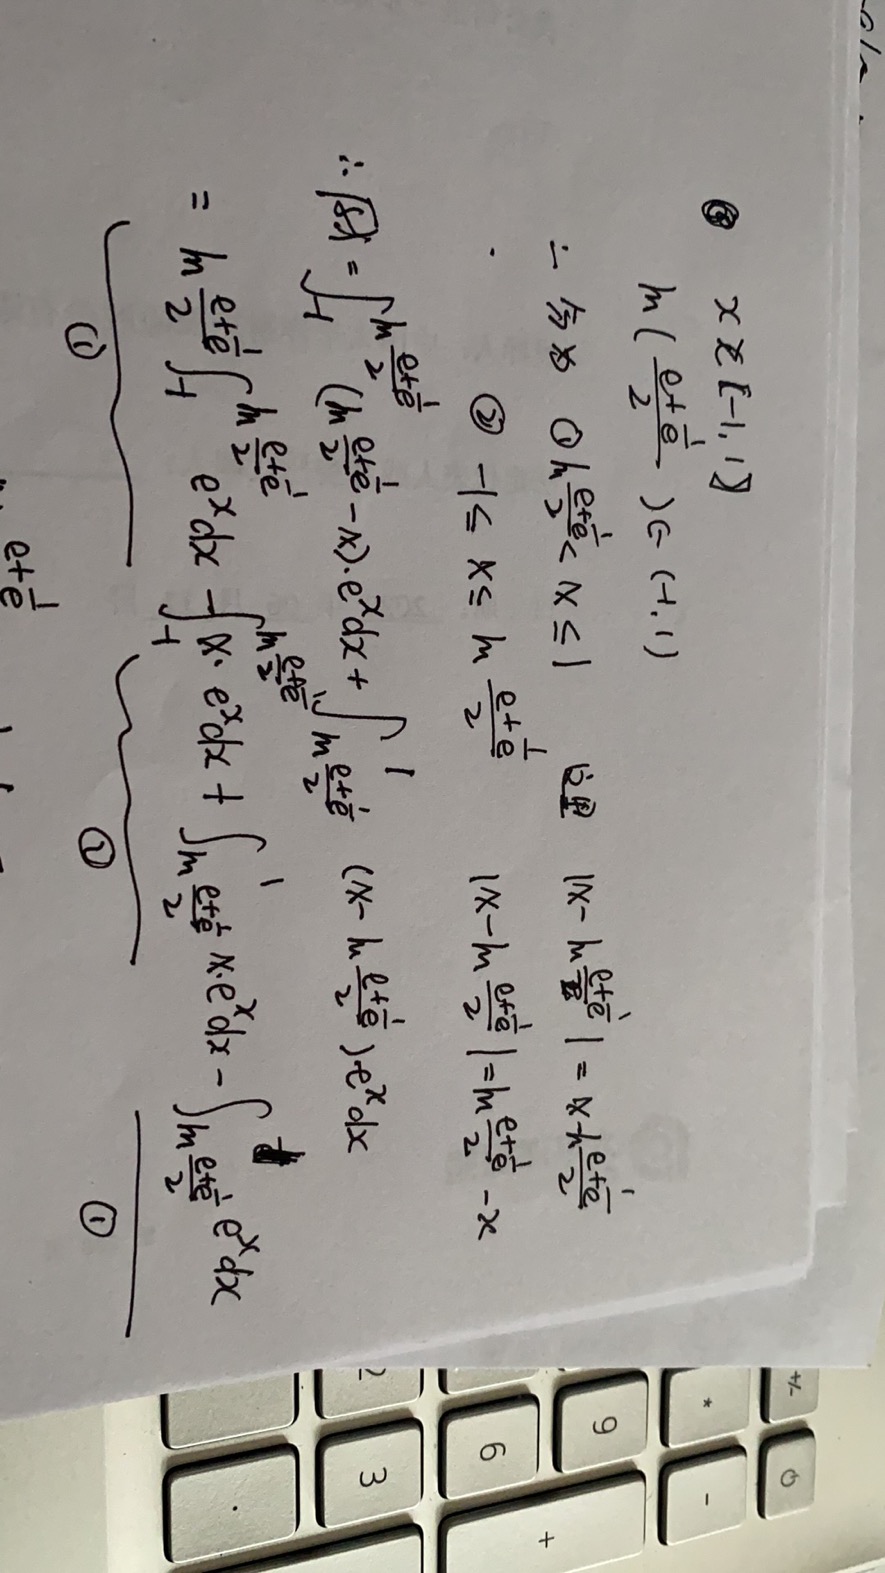 x ∈ [-1, 1]
ln( (e+1/e)/2 ) ∈ (-1, 1)
∴ 分为 ① ln (e+1/e)/2 < x ≤ 1 |x - ln (e+1/e)/2| = x - ln (e+1/e)/2
② -1 ≤ x ≤ ln (e+1/e)/2 |x - ln (e+1/e)/2| = ln (e+1/e)/2 - x
∴ 原式 = ∫_{-1}^{ln (e+1/e)/2} (ln (e+1/e)/2 - x)·e^x dx + ∫_{ln (e+1/e)/2}^{1} (x - ln (e+1/e)/2)·e^x dx
= ln (e+1/e)/2 ∫_{-1}^{ln (e+1/e)/2} e^x dx - ∫_{-1}^{ln (e+1/e)/2} x·e^x dx + ∫_{ln (e+1/e)/2}^{1} x·e^x dx - ∫_{ln (e+1/e)/2}^{1} e^x dx
① ② ①
e+1/e
+/-
*
-
9
6
+
3
.